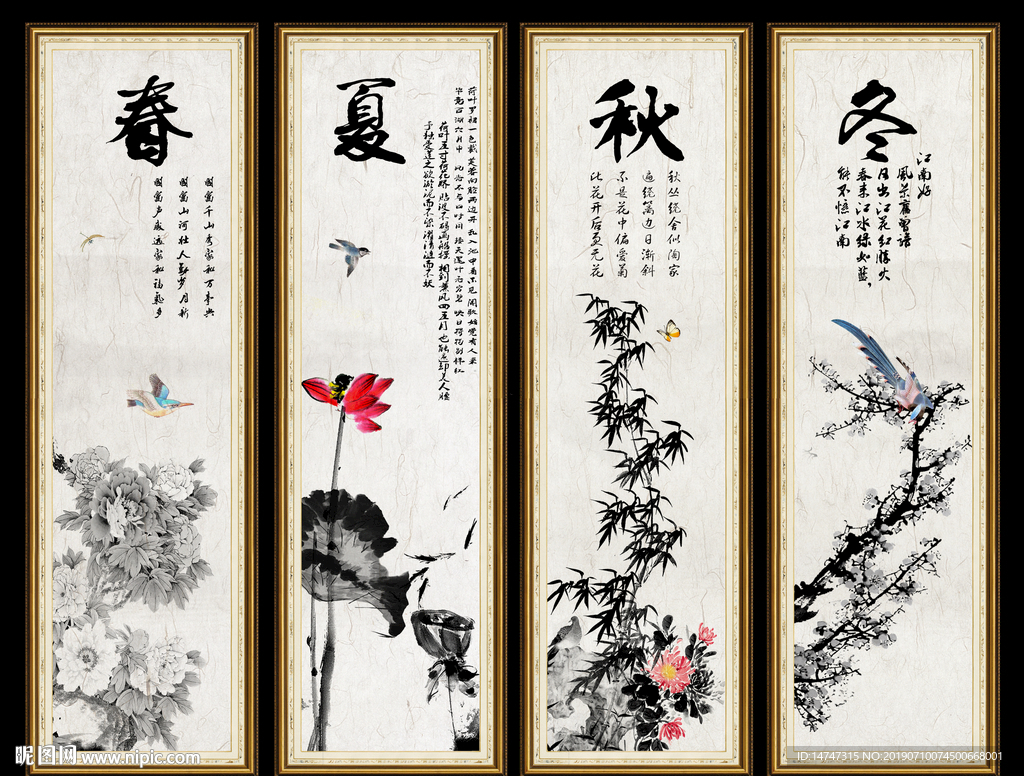 春
國富千山秀家和万事興
國富山河壮人勤岁月新
國富声威远家和福
夏
荷叶罗裙一色裁 芙蓉向脸两边开 乱入池中看不见 闻歌始觉有人来
毕竟西湖六月中 风光不与四时同 接天莲叶无穷碧 映日荷花别样红
荷叶五寸荷花娇 贴波不碍画船摇 相到薰风四五月 也能遮却美人腰
予独爱莲之淤泥而不染濯清涟而不妖
秋
秋丛绕舍似陶家
遍绕篱边日渐斜
不是花中偏爱菊
此花开后更无花
冬
江南好
风景舊曾谙
日出江花红胜火
春来江水绿如蓝，
能不憶江南
昵图网 www.nipic.com
ID:14747315 NO:20190710074500668001